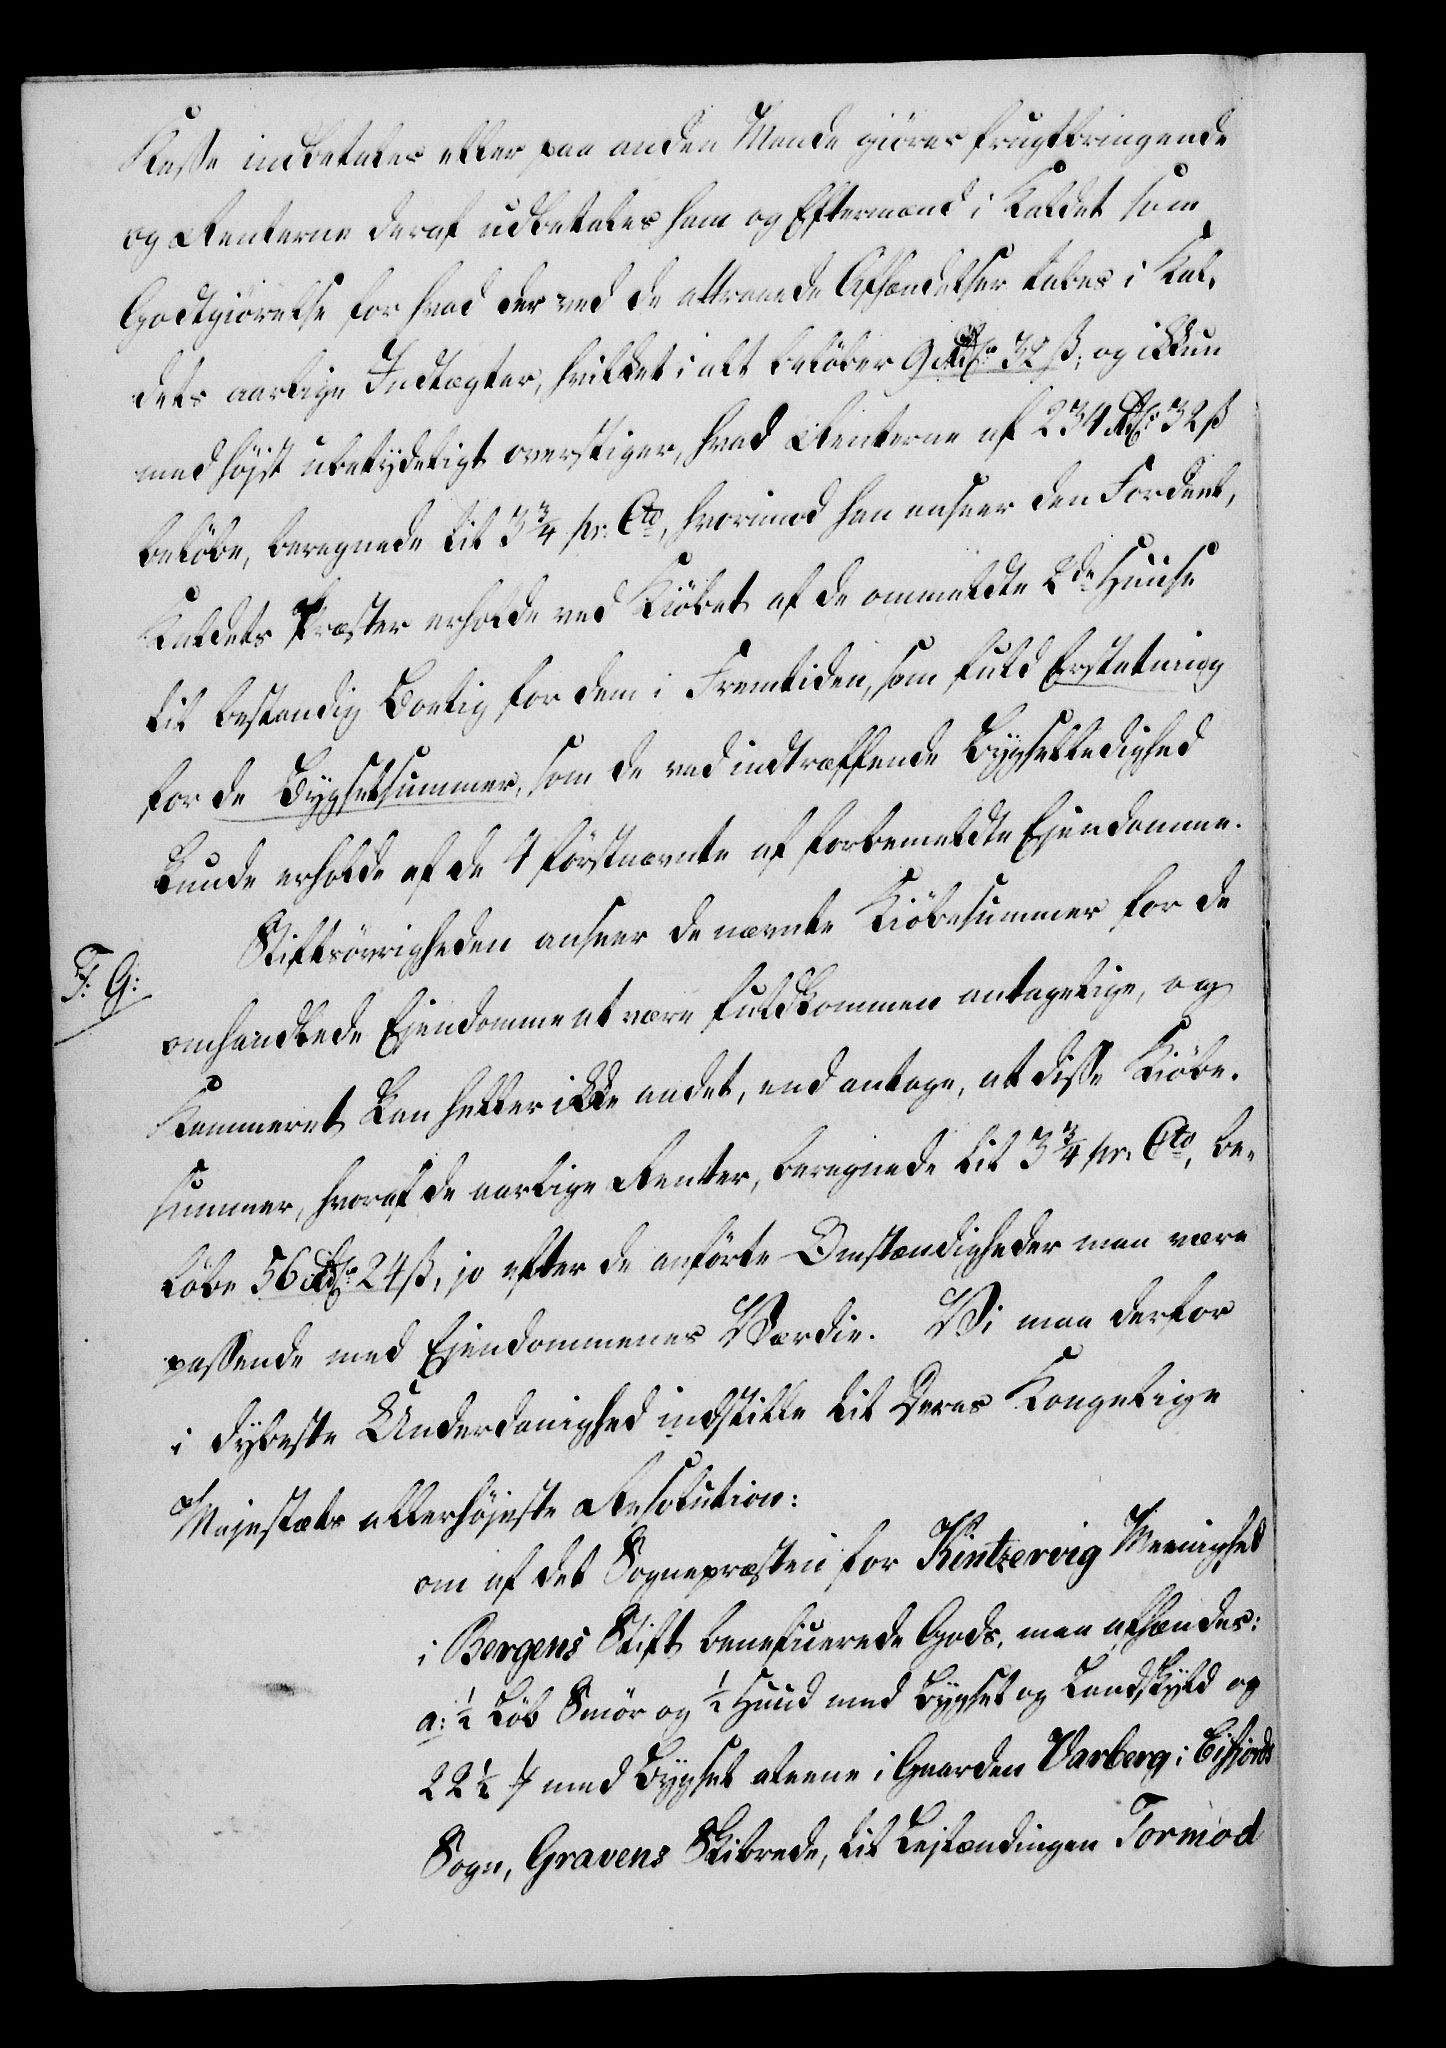 Kasse indbetales eller paa anden Maade giøres frugtbringende
og Renterne deraf udbetales ham og Eftermænd i Kaldet som
Godtgiørelse for hvad der ved de attraaede Afhændelser tabes i Kal-
dets aarlige Indtægter, hvilket i alt beløber 9 Rdlr 32 ß, og ikkun
med høist ubetydeligt overstiger, hvad Renterne af 234 Rdlr: 32 ß
beløbe, beregnede til 3 3/4 pr: Cto, hvorimod han anseer den Fordeel,
Kaldets Præster erholde ved Kiøbet af de ommeldte 2de Huuse
til bestandig Boelig for dem i Fremtiden, som fuld Erstatning
for de Bygselsummer, som de ved indtræffende Bygselledighed
kunde erholde af de 4 førstnævnte af forbemeldte Ejendomme.
F: G:
Stiftsøvrigheden anseer de nævnte Kiøbesummer for de
omhandlede Ejendomme at være fuldkommen antagelige, og
Kammeret kan heller ikke andet, end antage, at disse Kiøbe-
summer, hvoraf de aarlige Renter, beregnede til 3 3/4 pr: Cto, be-
løbe 56 Rdlr 24 ß, jo efter de anførte Omstændigheder maa være
passende med Ejendommenes Værdie. Vi maa derfor
i dybeste Underdanighed indstille til Deres Kongelige
Majestæts allerhøjeste Resolution:
om af det Sognepræsten for Kintzervig Menighed
i Bergens Stift beneficerede Gods, maa afhændes:
a: 1/2 Løb Smør og 1/2 Huud med Bygsel og Landskyld og
22 1/2 ℔ med Bygsel alene i Gaarden Varberg i Eifiords
Sogn, Gravens Skibrede, til Lejlændingen Tormod